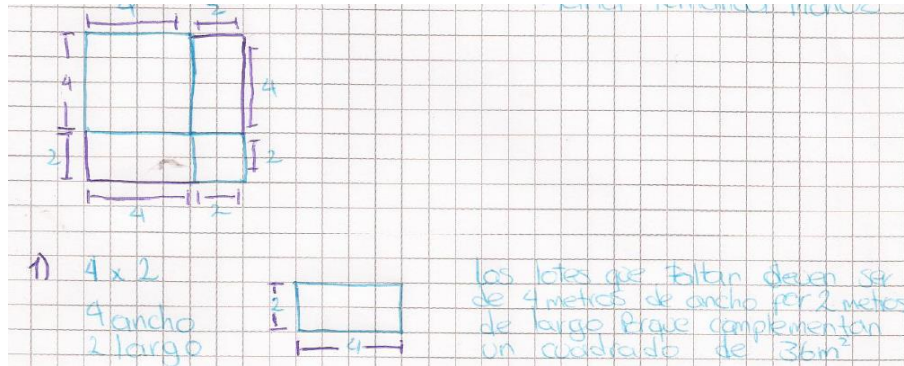 4 2
4 4
2 2
4 2
1) 4 x 2
4 ancho
2 largo
2
4
Los lotes que faltan deven ser
de 4 metros de ancho por 2 metros
de largo Porque complementan
un cuadrado de 36m²